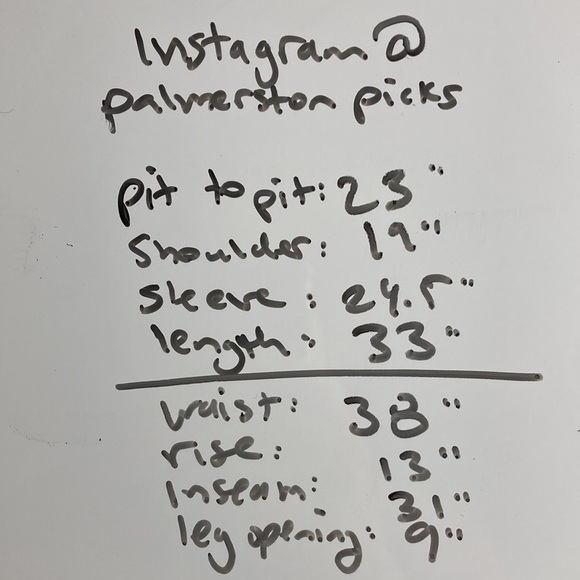 Instagram @
palmerston picks
pit to pit: 23"
Shoulder: 19"
sleeve: 24.5"
length: 33"
waist: 38"
rise: 13"
Inseam: 31"
leg opening: 9"